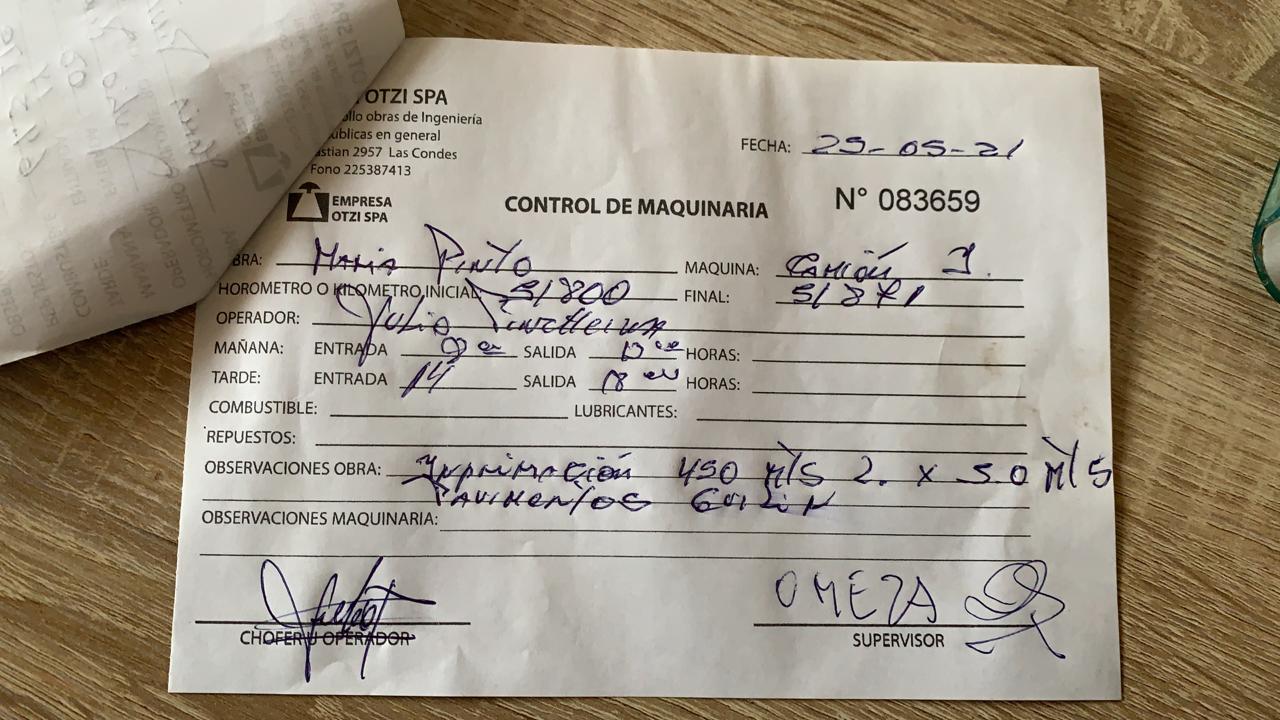 OTZI SPA
ollo obras de Ingeniería
úblicas en general
stian 2957 Las Condes
Fono 225387413
EMPRESA
OTZI SPA
CONTROL DE MAQUINARIA
FECHA: 25-05-21
N° 083659
BRA: Maria Pinto MAQUINA: Camión J.
HOROMETRO O KILOMETRO INICIAL 51800 FINAL: 51871
OPERADOR: Julio
MAÑANA: ENTRADA 9 oo SALIDA 13 oo HORAS:
TARDE: ENTRADA 14 SALIDA 18 oo HORAS:
COMBUSTIBLE: LUBRICANTES:
REPUESTOS:
OBSERVACIONES OBRA: Imprimación 450 Mts 2. x 5.0 Mts
Pavimentos
OBSERVACIONES MAQUINARIA:
OMEZA
CHOFER U OPERADOR
SUPERVISOR